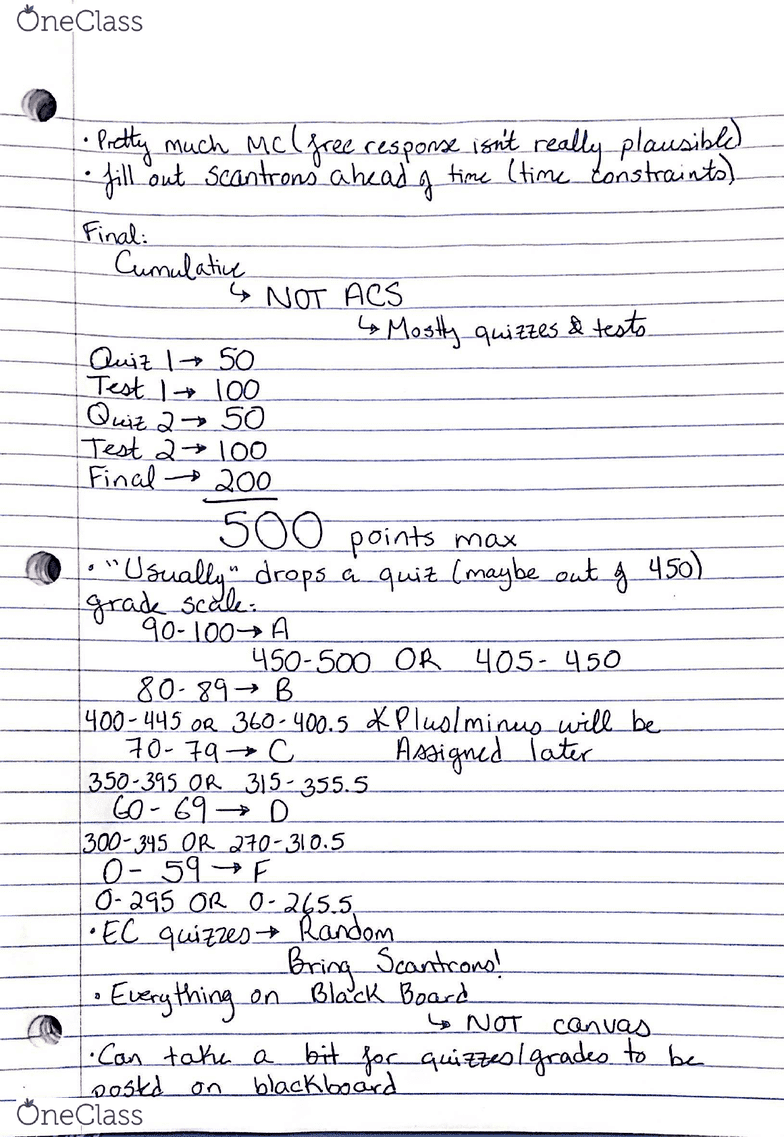 OneClass
• Pretty much MC (free response isn't really plausible)
• fill out scantrons ahead of time (time constraints)
Final:
Cumulative
↳ NOT ACS
↳ Mostly quizzes & tests
Quiz 1 → 50
Test 1 → 100
Quiz 2 → 50
Test 2 → 100
Final → 200
500 points max
• "Usually" drops a quiz (maybe out of 450)
grade scale:
90-100 → A
450-500 OR 405-450
80-89 → B
400-445 OR 360-400.5 * Plus/minus will be
70-79 → C Assigned later
350-395 OR 315-355.5
60-69 → D
300-345 OR 270-310.5
0-59 → F
0-295 OR 0-265.5
• EC quizzes → Random
Bring Scantrons!
• Everything on Black Board
↳ NOT canvas
• Can take a bit for quizzes/grades to be
postd on blackboard
OneClass